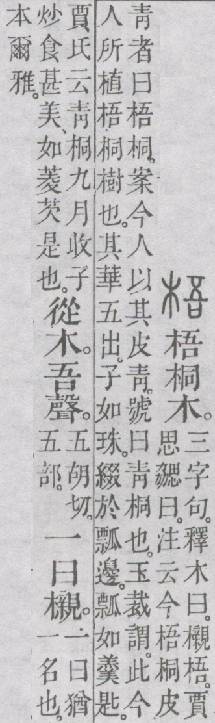 梧梧桐木。三字句。釋木曰。櫬梧。賈思勰曰。注云今梧桐皮
青者曰梧桐。案今人以其皮青。號曰青桐也。玉裁謂。此今
人所植梧桐樹也。其華五出。子如珠。綴於瓢邊。瓢如羹匙。
賈氏云青桐九月收子炒食甚美。如菱芡是也。從木。吾聲。五胡切。五部。一曰櫬。一曰猶一名也。
本爾雅。